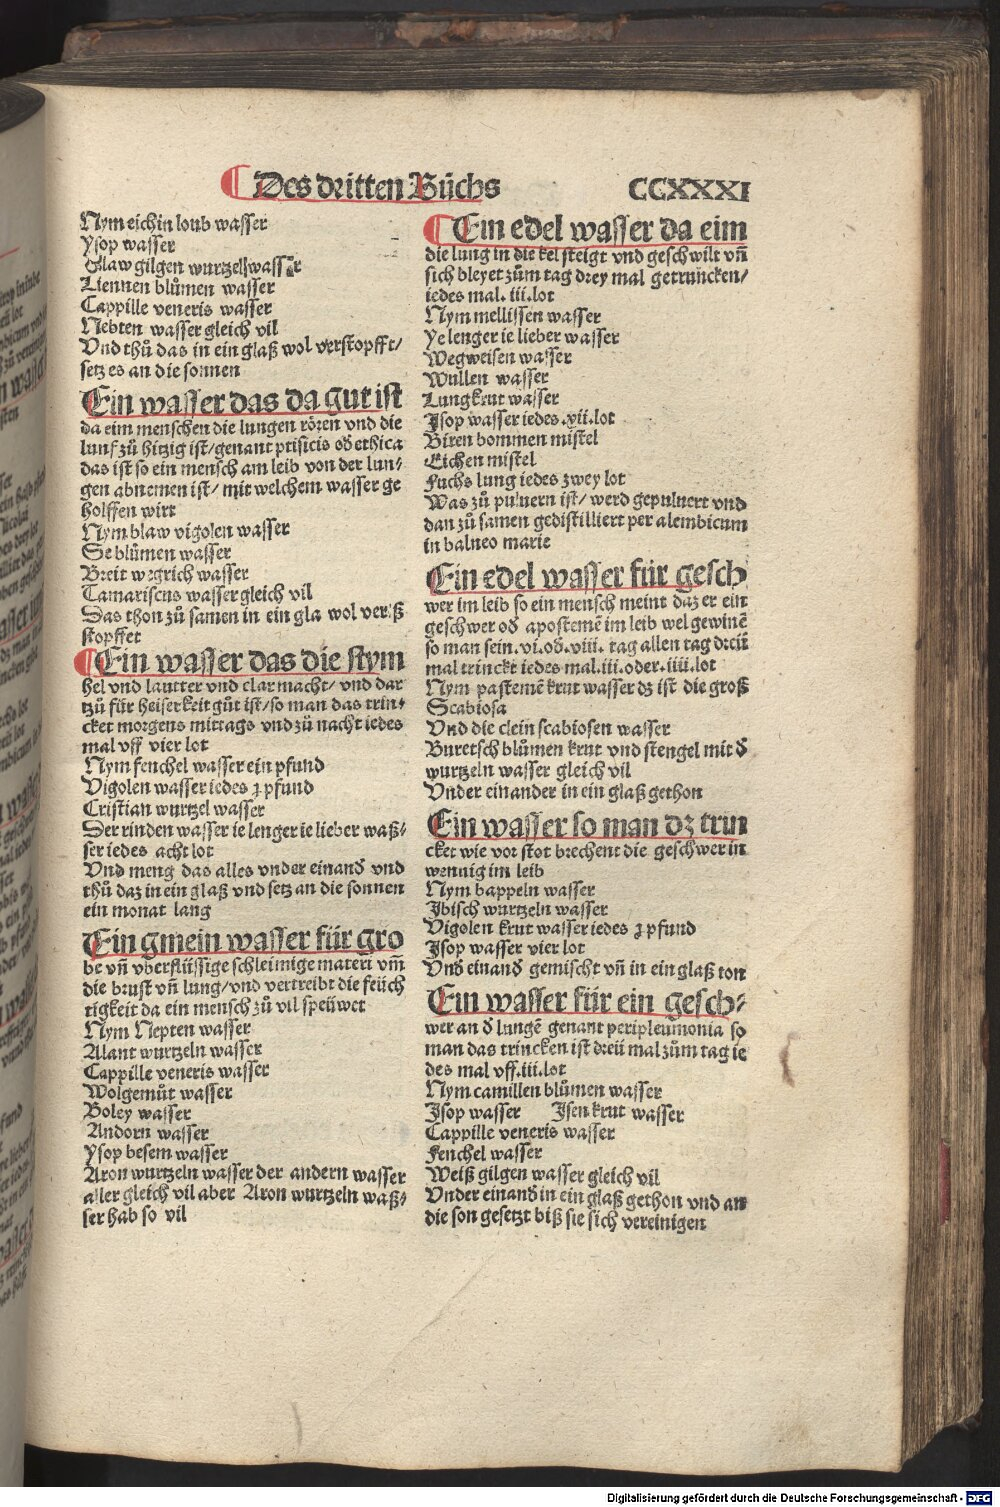 Des dritten Bůchs CCXXXI
Nym eichin loub wasser
Ysop wasser
Blaw gilgen wurtzel wasser
Liennen blůmen wasser
Cappille veneris wasser
Nebten wasser gleich vil
Vnd thů das in ein glaß wol verstopfft/
setz es an die sonnen
Ein wasser das da gut ist
da eim menschen die lungen rören vnd die
lunf zů hitzig ist/ genant ptisicis od ethica
das ist so ein mensch am leib von der lun⸗
gen abnemen ist/ mit welchem wasser ge
holffen wirt
Nym blaw vigolen wasser
Se blůmen wasser
Breit wegrich wasser
Tamariscus wasser gleich vil
Das thon zů samen in ein gla wol ver ß
stopffet
Ein wasser das die stym
hel vnd lautter vnd clar macht/ vnd dar
tzů für heiserkeit gůt ist/ so man das trin⸗
cket morgens mittags vnd zů nacht iedes
mal vff vier lot
Nym fenchel wasser ein pfund
Vigolen wasser iedes ꝛ pfund
Cristian wurtzel wasser
Der rinden wasser ie lenger ie lieber waß⸗
ser iedes acht lot
Vnd meng das alles vnder einand vnd
thů daz in ein glaß vnd setz an die sonnen
ein monat lang
Ein gmein wasser für gro
be vñ vberflüssige schleimige materi vm̃
die brust vñ lung/ vnd vertreibt die feüch
tigkeit da ein mensch zů vil speüwet
Nym Nepten wasser
Alant wurtzeln wasser
Cappille veneris wasser
Wolgemůt wasser
Boley wasser
Andorn wasser
Ysop besem wasser
Aron wurtzeln wasser der andern wasser
aller gleich vil aber Aron wurtzeln waß⸗
ser hab so vil
Ein edel wasser da eim
die lung in die kel steigt vnd geschwilt vñ
sich bleyet zům tag drey mal getruncken/
iedes mal. iii. lot
Nym mellissen wasser
Ye lenger ie lieber wasser
Wegweisen wasser
Wullen wasser
Lungkrut wasser
Isop wasser iedes .xii. lot
Biren bommen mistel
Eichen mistel
Fuchs lung iedes zwey lot
Was zů puluern ist/ werd gepuluert vnd
dan zů samen gedistilliert per alembicum
in balneo marie
Ein edel wasser für gesch
wer im leib so ein mensch meint daz er ein
geschwer od apostemē im leib wel gewinē
so man sein .vi. od. viii. tag allen tag dreii
mal trinckt iedes mal. iii. oder. iiii. lot
Nym pastemē krut wasser dz ist die groß
Scabiosa
Vnd die clein scabiosen wasser
Buretsch blůmen krut vnd stengel mit d
wurtzeln wasser gleich vil
Vnder einander in ein glaß gethon
Ein wasser so man dz trin
cket wie vor stot brechent die geschwer in
wennig im leib
Nym bappeln wasser
Ibisch wurtzeln wasser
Vigolen krut wasser iedes ꝛ pfund
Isop wasser vier lot
Vnd einand gemischt vñ in ein glaß ton
Ein wasser für ein gesch⸗
wer an d lungē genant peripleumonia so
man das trincken ist dreii mal zům tag ie
des mal vff. iii. lot
Nym camillen blůmen wasser
Isop wasser Isen krut wasser
Cappille veneris wasser
Fenchel wasser
Weiß gilgen wasser gleich vil
Vnder einand in ein glaß gethon vnd an
die son gesetzt biß sie sich vereinigen
Digitalisierung gefördert durch die Deutsche Forschungsgemeinschaft - DFG